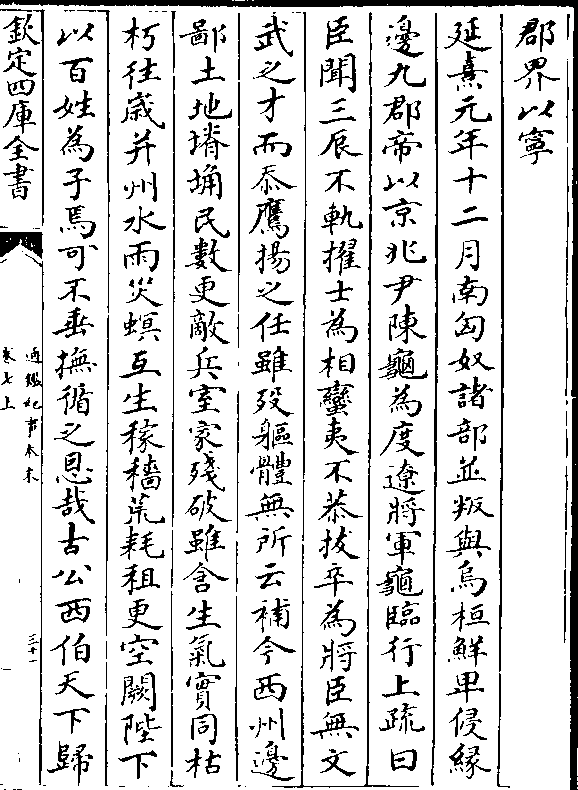 郡界以寧
延熹元年十二月南匈奴諸部並叛與烏桓鮮卑侵緣
邊九郡帝以京兆尹陳龜為度遼將軍龜臨行上疏曰
臣聞三辰不軌擢士為相蠻夷不恭拔卒為將臣無文
武之才而忝鷹揚之任雖殁軀體無所云補今西州邊
鄙土地塉埆民數更敵兵室家殘破雖含生氣實同枯
朽往歲并州水雨災螟互生稼穡荒耗租更空闕陛下
以百姓為子焉可不垂撫循之恩哉古公西伯天下歸
欽定四庫全書
通鑑紀事本末
卷七上
三十一